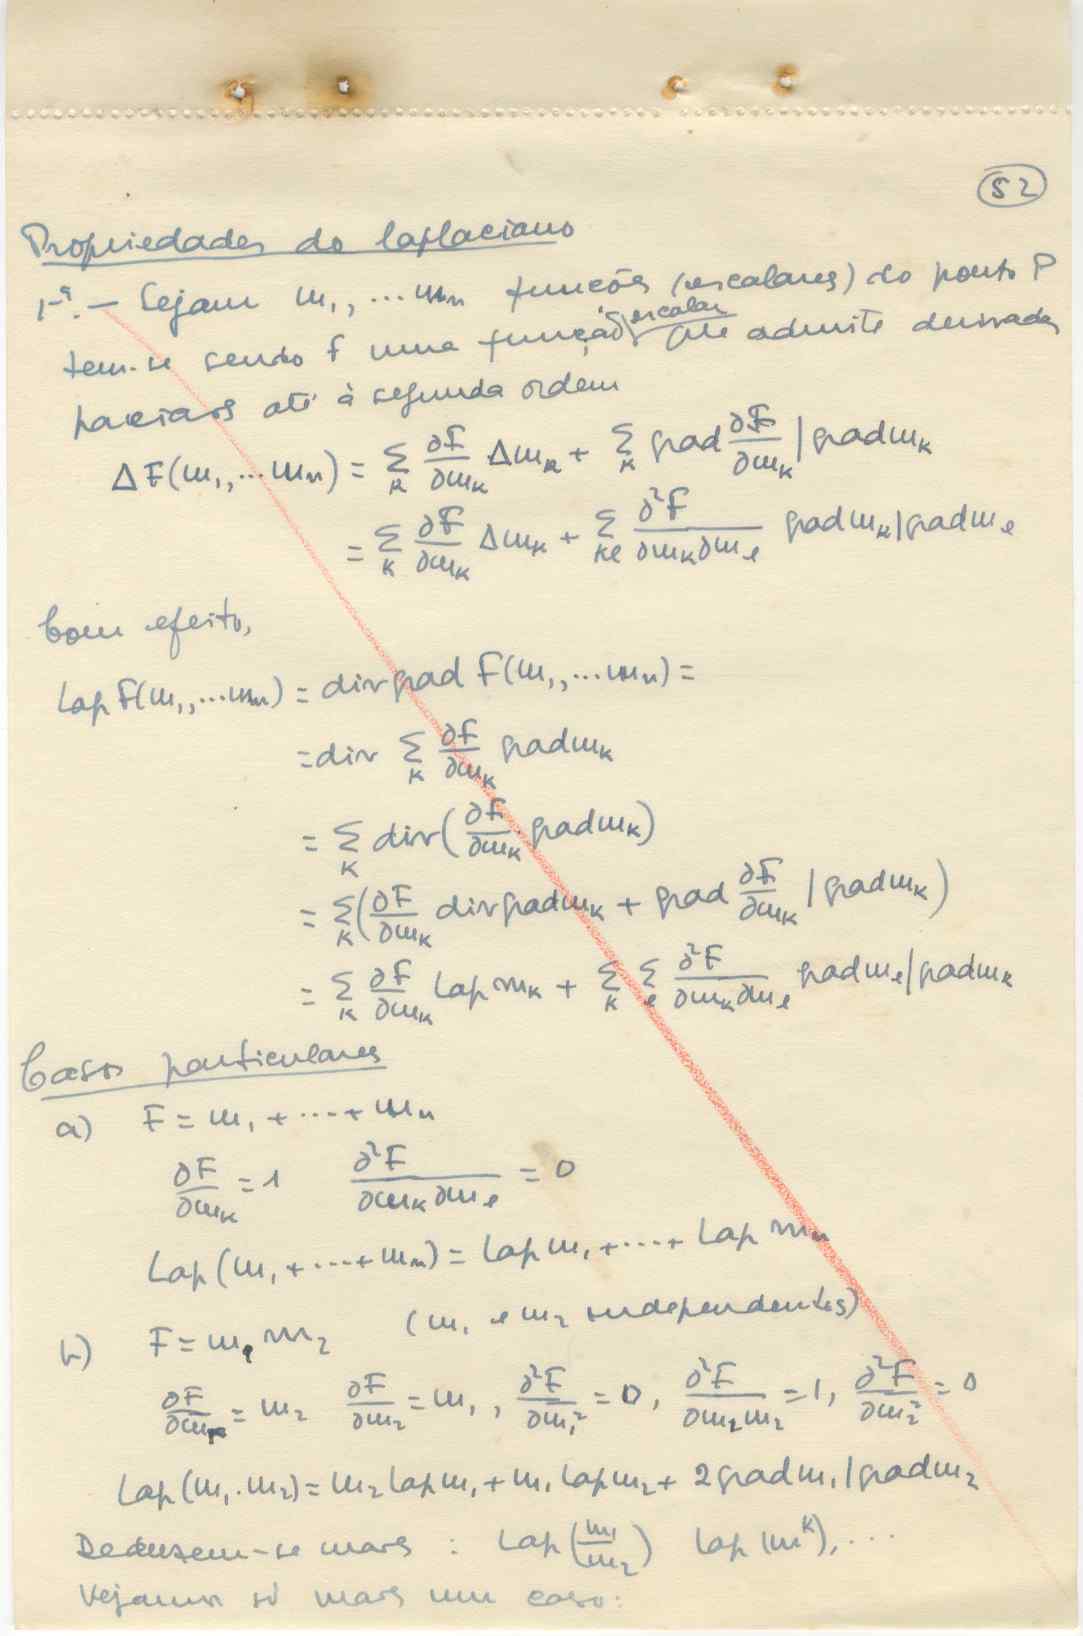 52
Propriedades do laplaciano
1ª. — Sejam m₁, ... mₙ funções (escalares) do ponto P
tem-se sendo F uma função escalar que admite derivadas
parciais até à segunda ordem
ΔF(m₁, ... mₙ) = Σ_k ∂F/∂m_k Δm_k + Σ_k grad ∂F/∂m_k | grad m_k
= Σ_k ∂F/∂m_k Δm_k + Σ_kl ∂²F/∂m_k∂m_l grad m_k | grad m_l
Com efeito,
Lap F(m₁, ... mₙ) = div grad F(m₁, ... mₙ) =
= div Σ_k ∂F/∂m_k grad m_k
= Σ_k div(∂F/∂m_k · grad m_k)
= Σ_k (∂F/∂m_k div grad m_k + grad ∂F/∂m_k | grad m_k)
= Σ_k ∂F/∂m_k Lap m_k + Σ_k Σ_l ∂²F/∂m_k∂m_l grad m_l | grad m_k
Casos particulares
a) F = m₁ + ··· + mₙ
∂F/∂m_k = 1 ∂²F/∂m_k∂m_l = 0
Lap(m₁ + ··· + mₙ) = Lap m₁ + ··· + Lap mₙ
b) F = m₁ m₂ (m₁ e m₂ independentes)
∂F/∂m₁ = m₂ ∂F/∂m₂ = m₁, ∂²F/∂m₁² = 0, ∂²F/∂m₂m₂ = 1, ∂²F/∂m₂² = 0
Lap(m₁·m₂) = m₂ Lap m₁ + m₁ Lap m₂ + 2 grad m₁ | grad m₂
Deduzem-se mais : Lap(m₁/m₂) Lap(m^k), ...
Vejamos só mais um caso: